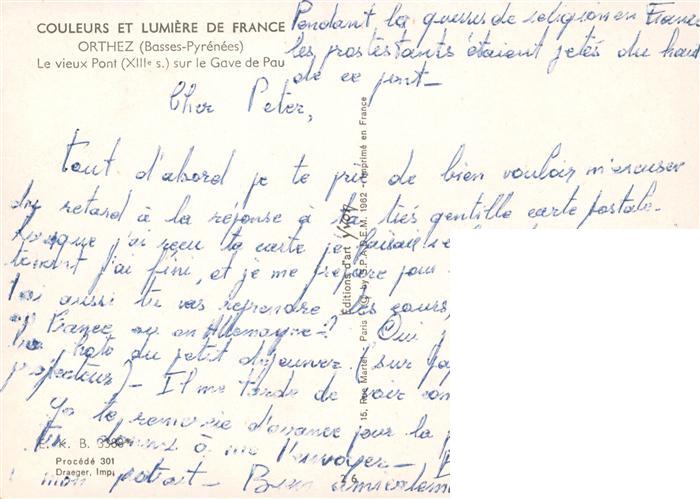 COULEURS ET LUMIÈRE DE FRANCE
ORTHEZ (Basses-Pyrénées)
Le vieux Pont (XIIIe s.) sur le Gave de Pau
Pendant la guerres de religion en France
les prostestants étaient jetés du haut
de ce pont_
Cher Peter,
Tout d'abord je te prie de bien vouloir m'excuser
du retard à la réponse à ta très gentille carte postale.
Lorsque j'ai reçu ta carte je faisais
j'ai fini, et je me prépare pour
Toi aussi tu vas reprendre les cours,
France ou en Allemagne_? Oui
photo du petit déjeuner (sur
projecteur)_ Il me tarde de voir
Je te remercie d'avance pour la
à me l'envoyer_
mon portrait_ Bien amicalem
Editions d'art YVON
15, Rue Martel - Paris by S.P.A.D.E.M. 1962 - Imprimé en France
K. B.
Procédé 301
Draeger, Imp.